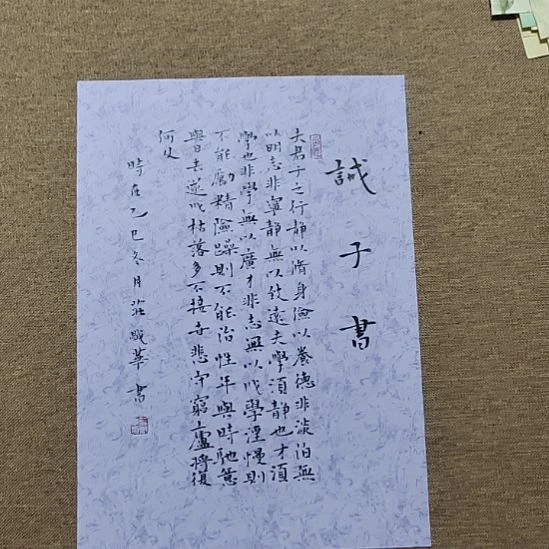 誡子書
夫君子之行静以脩身儉以養德非淡泊無
以明志非寧静無以致遠夫學須静也才須
學也非學無以廣才非志無以成學淫慢則
不能勵精險躁則不能治性年與時馳意
與日去遂成枯落多不接世悲守窮廬將復
何及
時在乙巳冬月莊華書